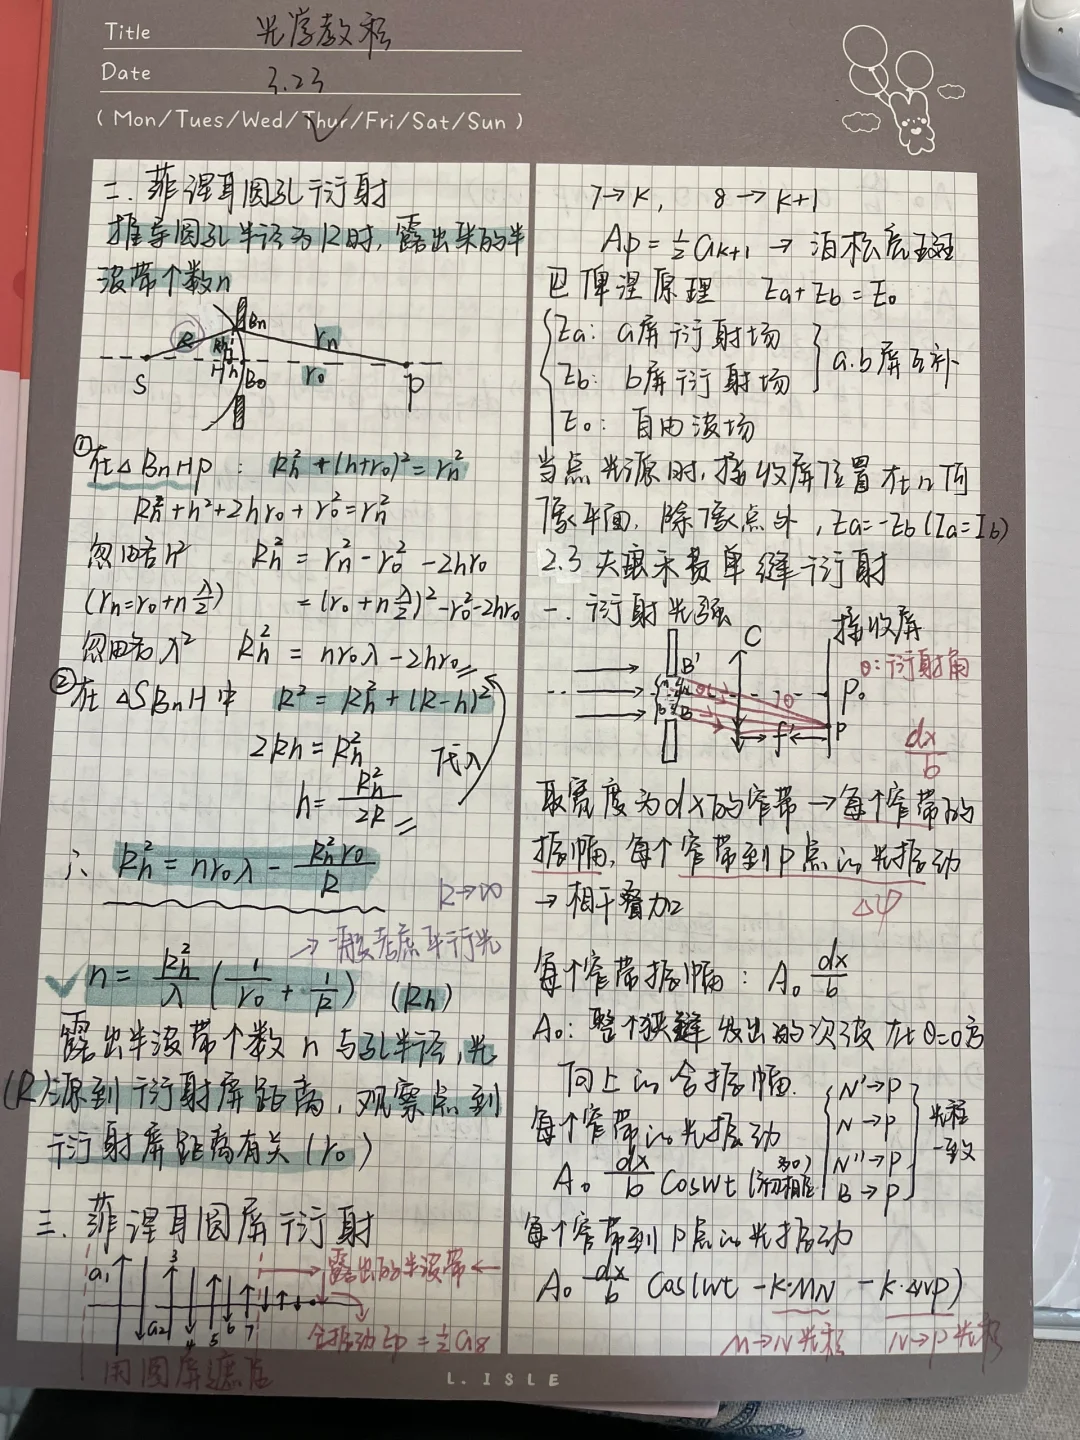 Title 光学教程
Date 3.23
(Mon/Tues/Wed/Thur/Fri/Sat/Sun)
二.菲涅耳圆孔衍射
推导圆孔半径为R时,露出来的半
波带个数n
Bn
R
Rh
rn
h
S
H
B0
r0
P
① 在△BnHP: Rh²+(h+r0)²=rn²
Rh²+h²+2hr0+r0²=rn²
忽略h² Rh²=rn²-r0²-2hr0
(rn=r0+nλ/2) =(r0+nλ/2)²-r0²-2hr0
忽略λ² Rh²=nr0λ-2hr0
② 在△SBnH中 R²=Rh²+(R-h)²
2Rh=Rh²
代入
h=Rh²/2R
∴ Rh²=nr0λ-Rh²r0/R
R→∞
→一般考虑平行光
n=Rh²/λ(1/r0+1/R) (Rh)
露出半波带个数n与孔半径,光
(R)源到衍射屏距离,观察点到
衍射屏距离有关(r0)
三.菲涅耳圆屏衍射
a1 3 露出的半波带
a2 4 5 6 7 合振动Ep=½a8
用圆屏遮住
7→K, 8→K+1
Ap=½aK+1→泊松亮斑
巴俾涅原理 Ea+Eb=E0
Ea: a屏衍射场
a.b屏互补
Eb: b屏衍射场
E0: 自由波场
当点光源时,接收屏位置在几何
像平面,除像点外,Ea=-Eb(Ia=Ib)
2.3 夫琅禾费单缝衍射
一.衍射光强
C 接收屏
B' θ:衍射角
θ P0
B P
f'
dx/b
取宽度为dx的窄带→每个窄带的
振幅,每个窄带到P点的光振动
→相干叠加 Δφ
每个窄带振幅: A0 dx/b
A0: 整个狭缝发出的次波在θ=0方
向上的合振幅.
N'→P
每个窄带的光振动 N→P 光程
一致
A0 dx/b coswt (初相为0) N''→P
B→P
每个窄带到P点的光振动
A0 dx/b cos(wt-K·MN-K·ΔNP)
M→N光程 N→P光程
L.ISLE